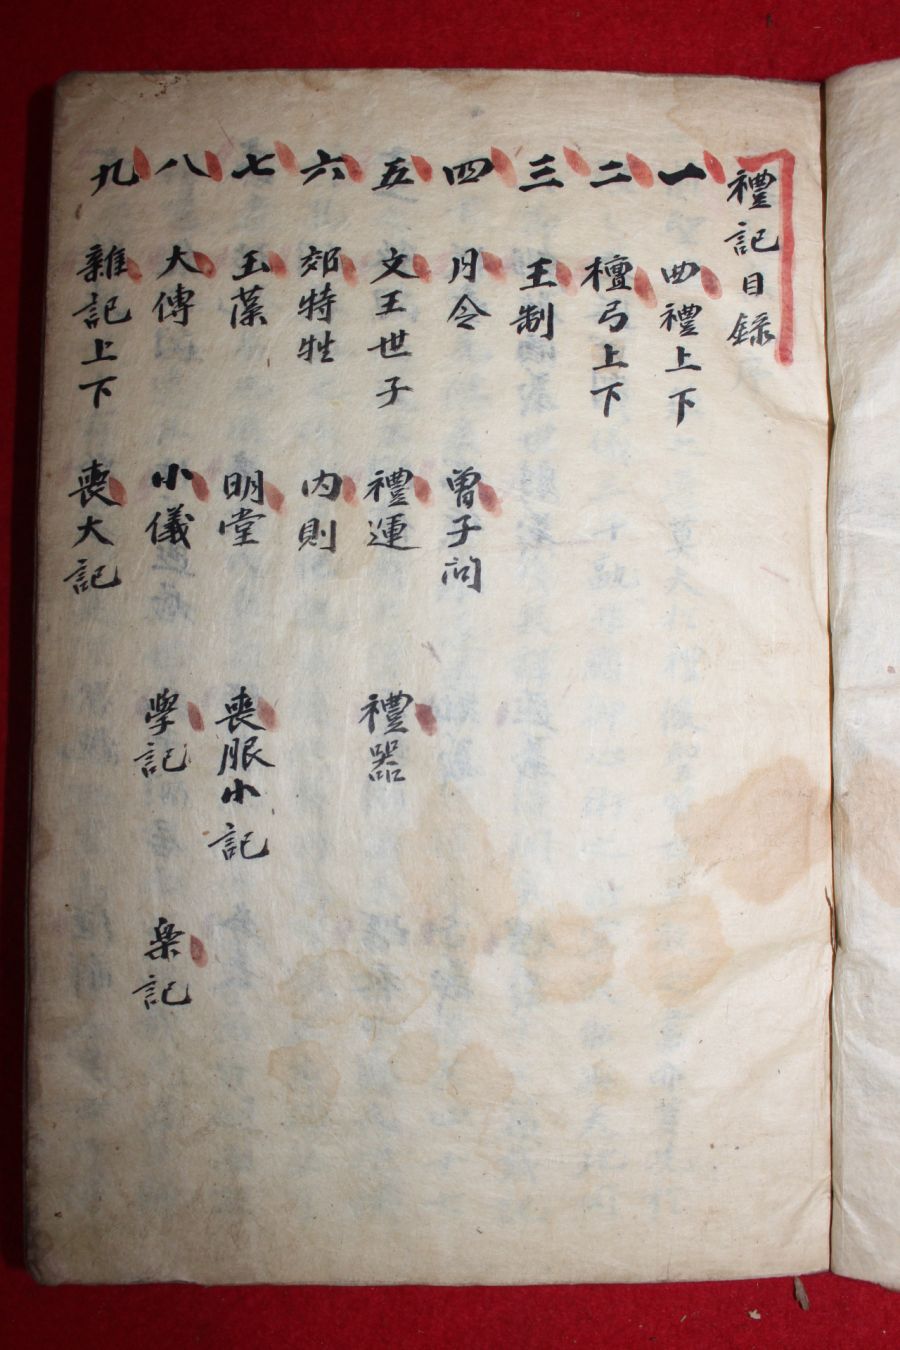 禮記目錄
一 曲禮上下
二 檀弓上下
三 王制
四 月令 曾子問
五 文王世子 禮運 禮器
六 郊特牲 內則
七 玉藻 明堂 喪服小記
八 大傳 小儀 學記 樂記
九 雜記上下 喪大記